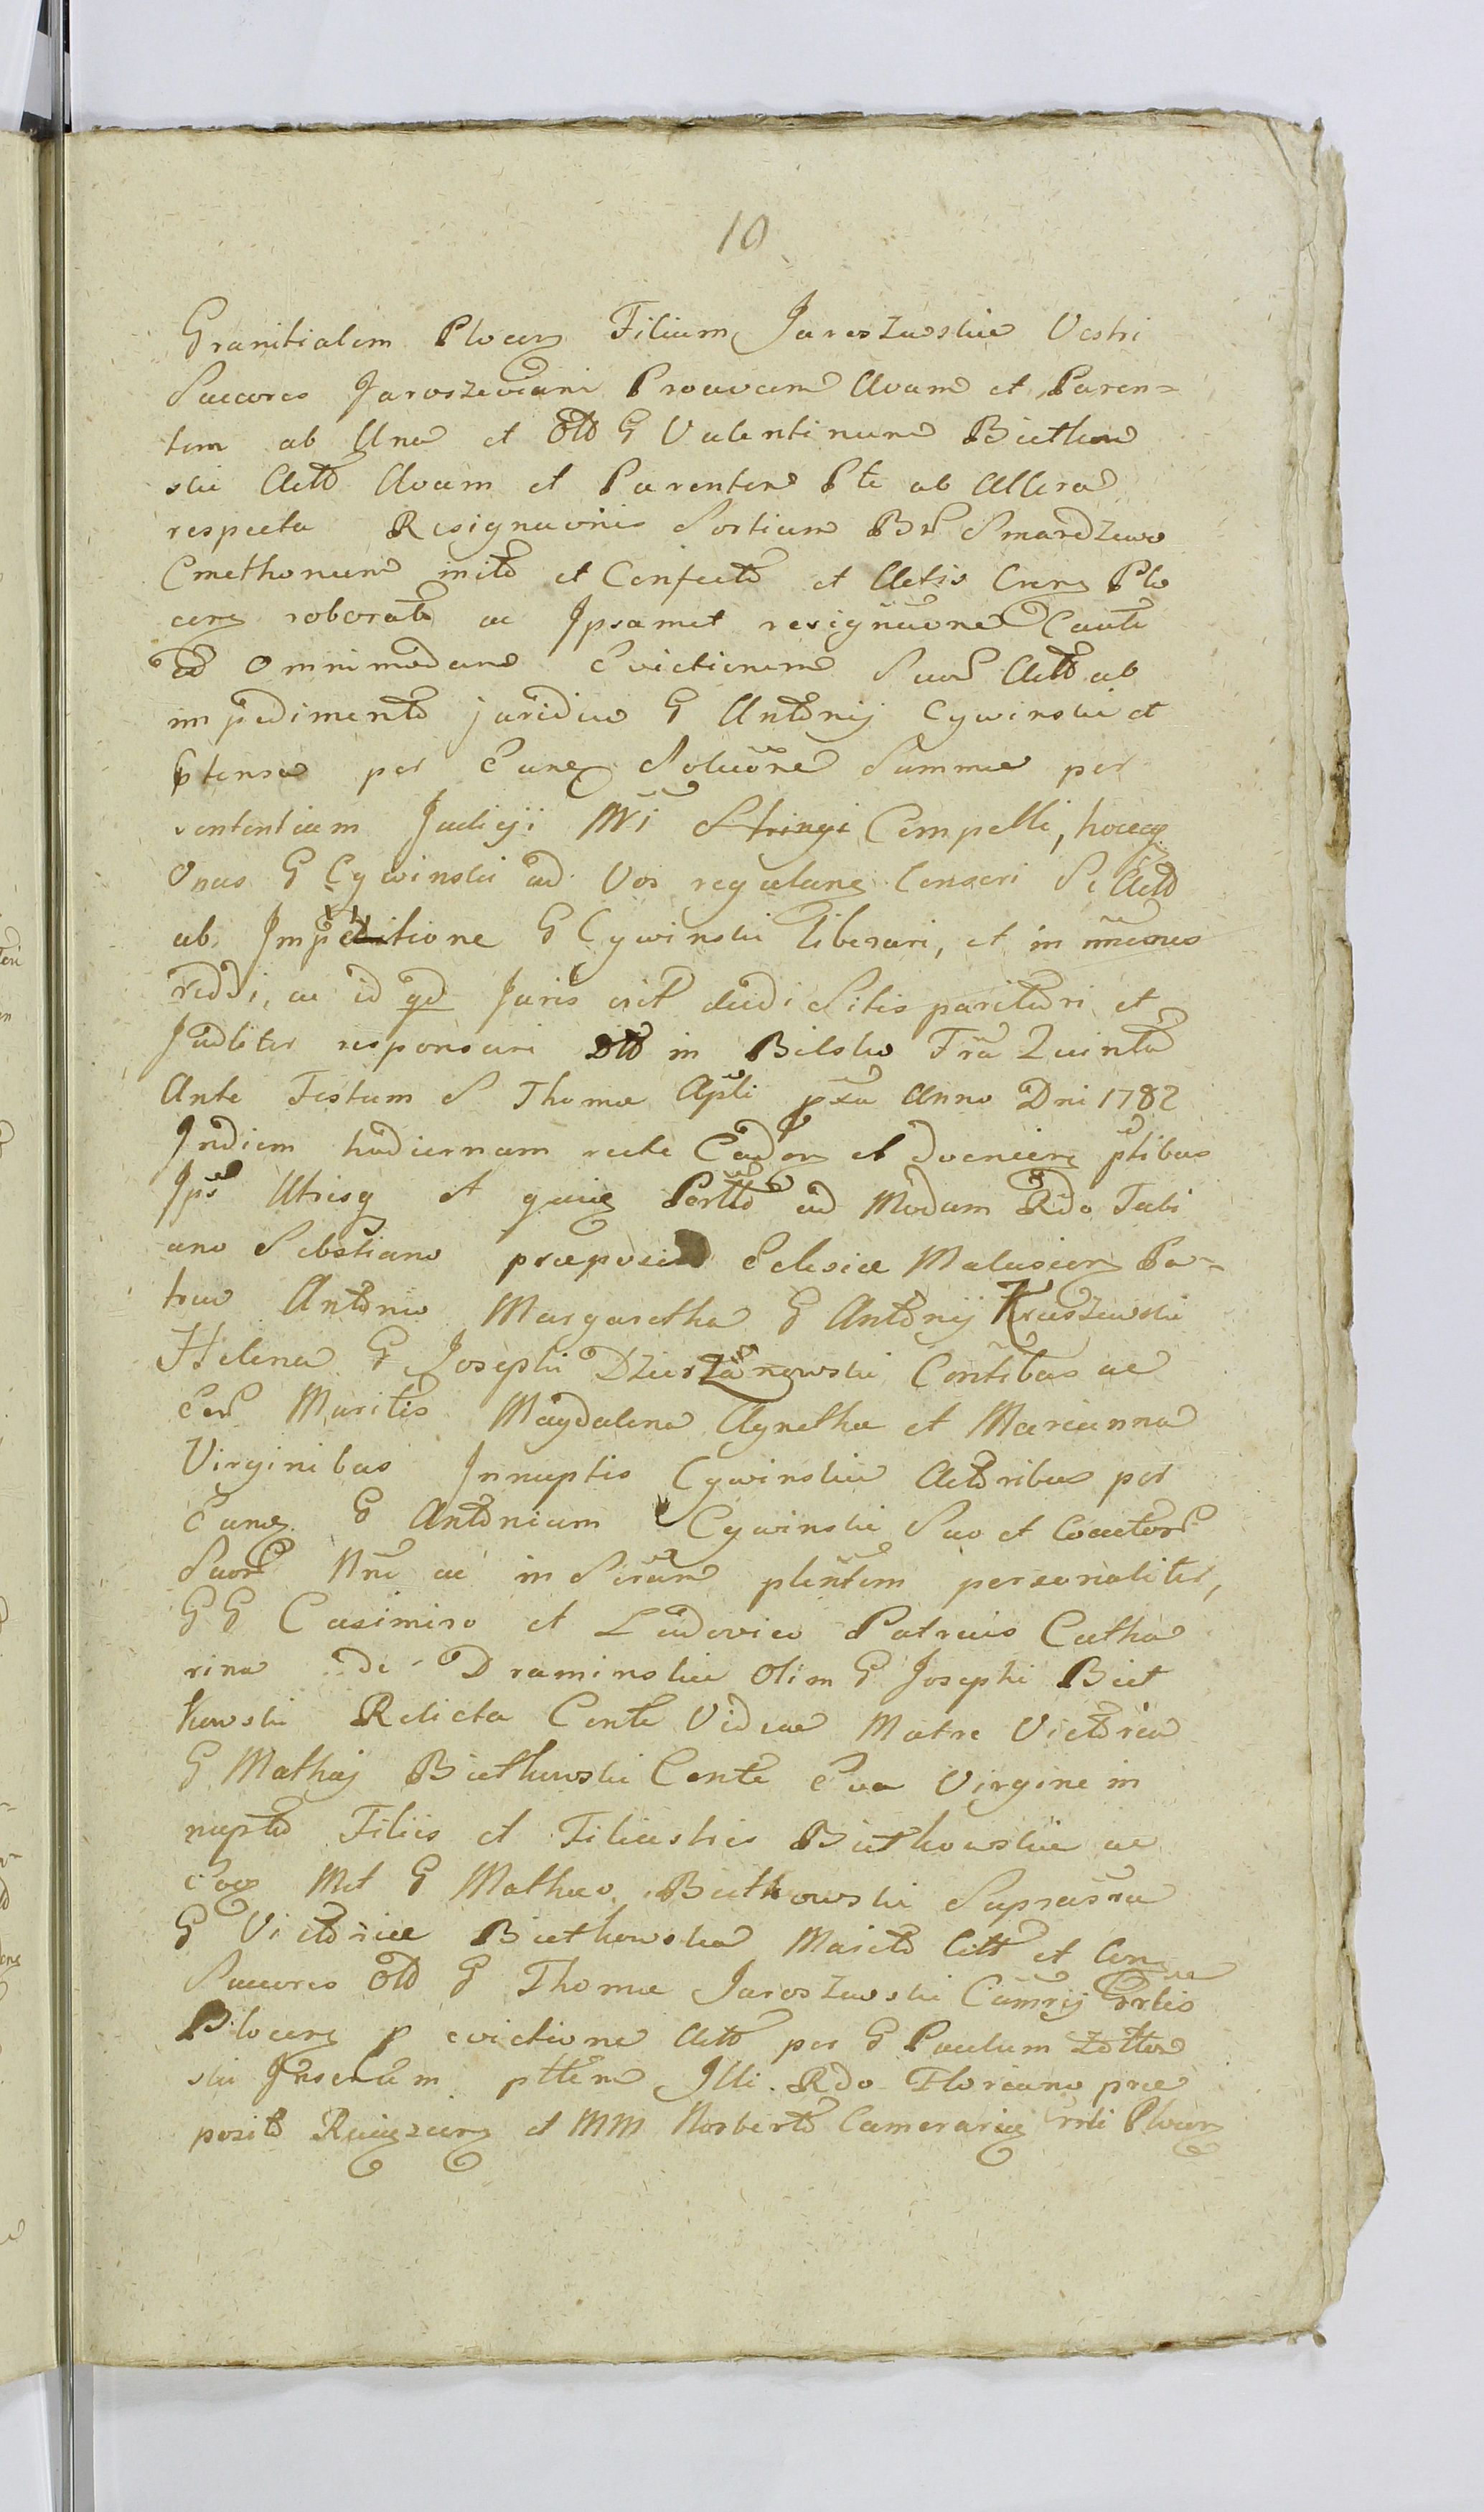 10
Granitialem Plocen Filium Jaroszewskie Vestri
Succores Jaroszeviani Proavum Avum et Paren=
tem ab Una et Olo G Valentinum Bietkow
ski Acto Avum et Parentem Pte ab Altera
respectu Resignaonis Sortium Br Smardzewo
Cmethonum inito et Confecto et Actis Cren Plo
cen roborato ac Ipsamet resignaone Caute
ad omnimodam Evictionem Suor Acto ab
impedimento juridico G Antonij Cywinski et
ptensa per Eunq Soluone Summae per
sententiam Judicji Nri Stringi Compelli, hocq
Onus G Cywinski ad Vos regulans Censeri Se Acto
ab Impetitione G Cywinski liberari, et in
reddi, ac id qd Juris erit dicidi Sitis parituri et
Judliter responsuri Dto in Bielsko Fria Quinta
Ante Festum S Thomae Apli pxa Anno Dni 1782
Indiem hodiernam recte Caden et doenien ptibus
Ips Utrisq et quiq Perlto ad Modum Rdo Fabi
ano Sebstiano praeposito Eclesiae Malusien Pa=
truo Antonio Margaretha G Antonij Kraszewski
Helena G Josephi Dzierzanowski Contibus ac
Eor Maritis Magdalena Agnetha et Marianna
Virginibus Innuptis Cywinskie Actoribus per
Eunq G Antonium Cywinski Suo et Coactor
Suor Nne ac in Siram plentem personaliter,
G G Casimiro et Ludovico Patruis Catha
rina de Draminskie Olim G Josephi Biet
kowski Relicta Conte Vidua Matre Victoria
G Mathaj Bietkowski Conte Eva Virgine in
nupta Filiis et Filiastris Bietkowskie ac
Eoq Met G Mathaeo Bietkowski Suprasva
G Victoriae Bietkowska Marito Citt et Con
Succores Olo G Thomae Jaroszewski Camrij Grrlis
Plocen p evictione Acto per G Paulum Zotto
ski Insertum pttem Illi Rdo Floriano prae
posito Raciązen et MM Norberto Camerarij rrli Plocen